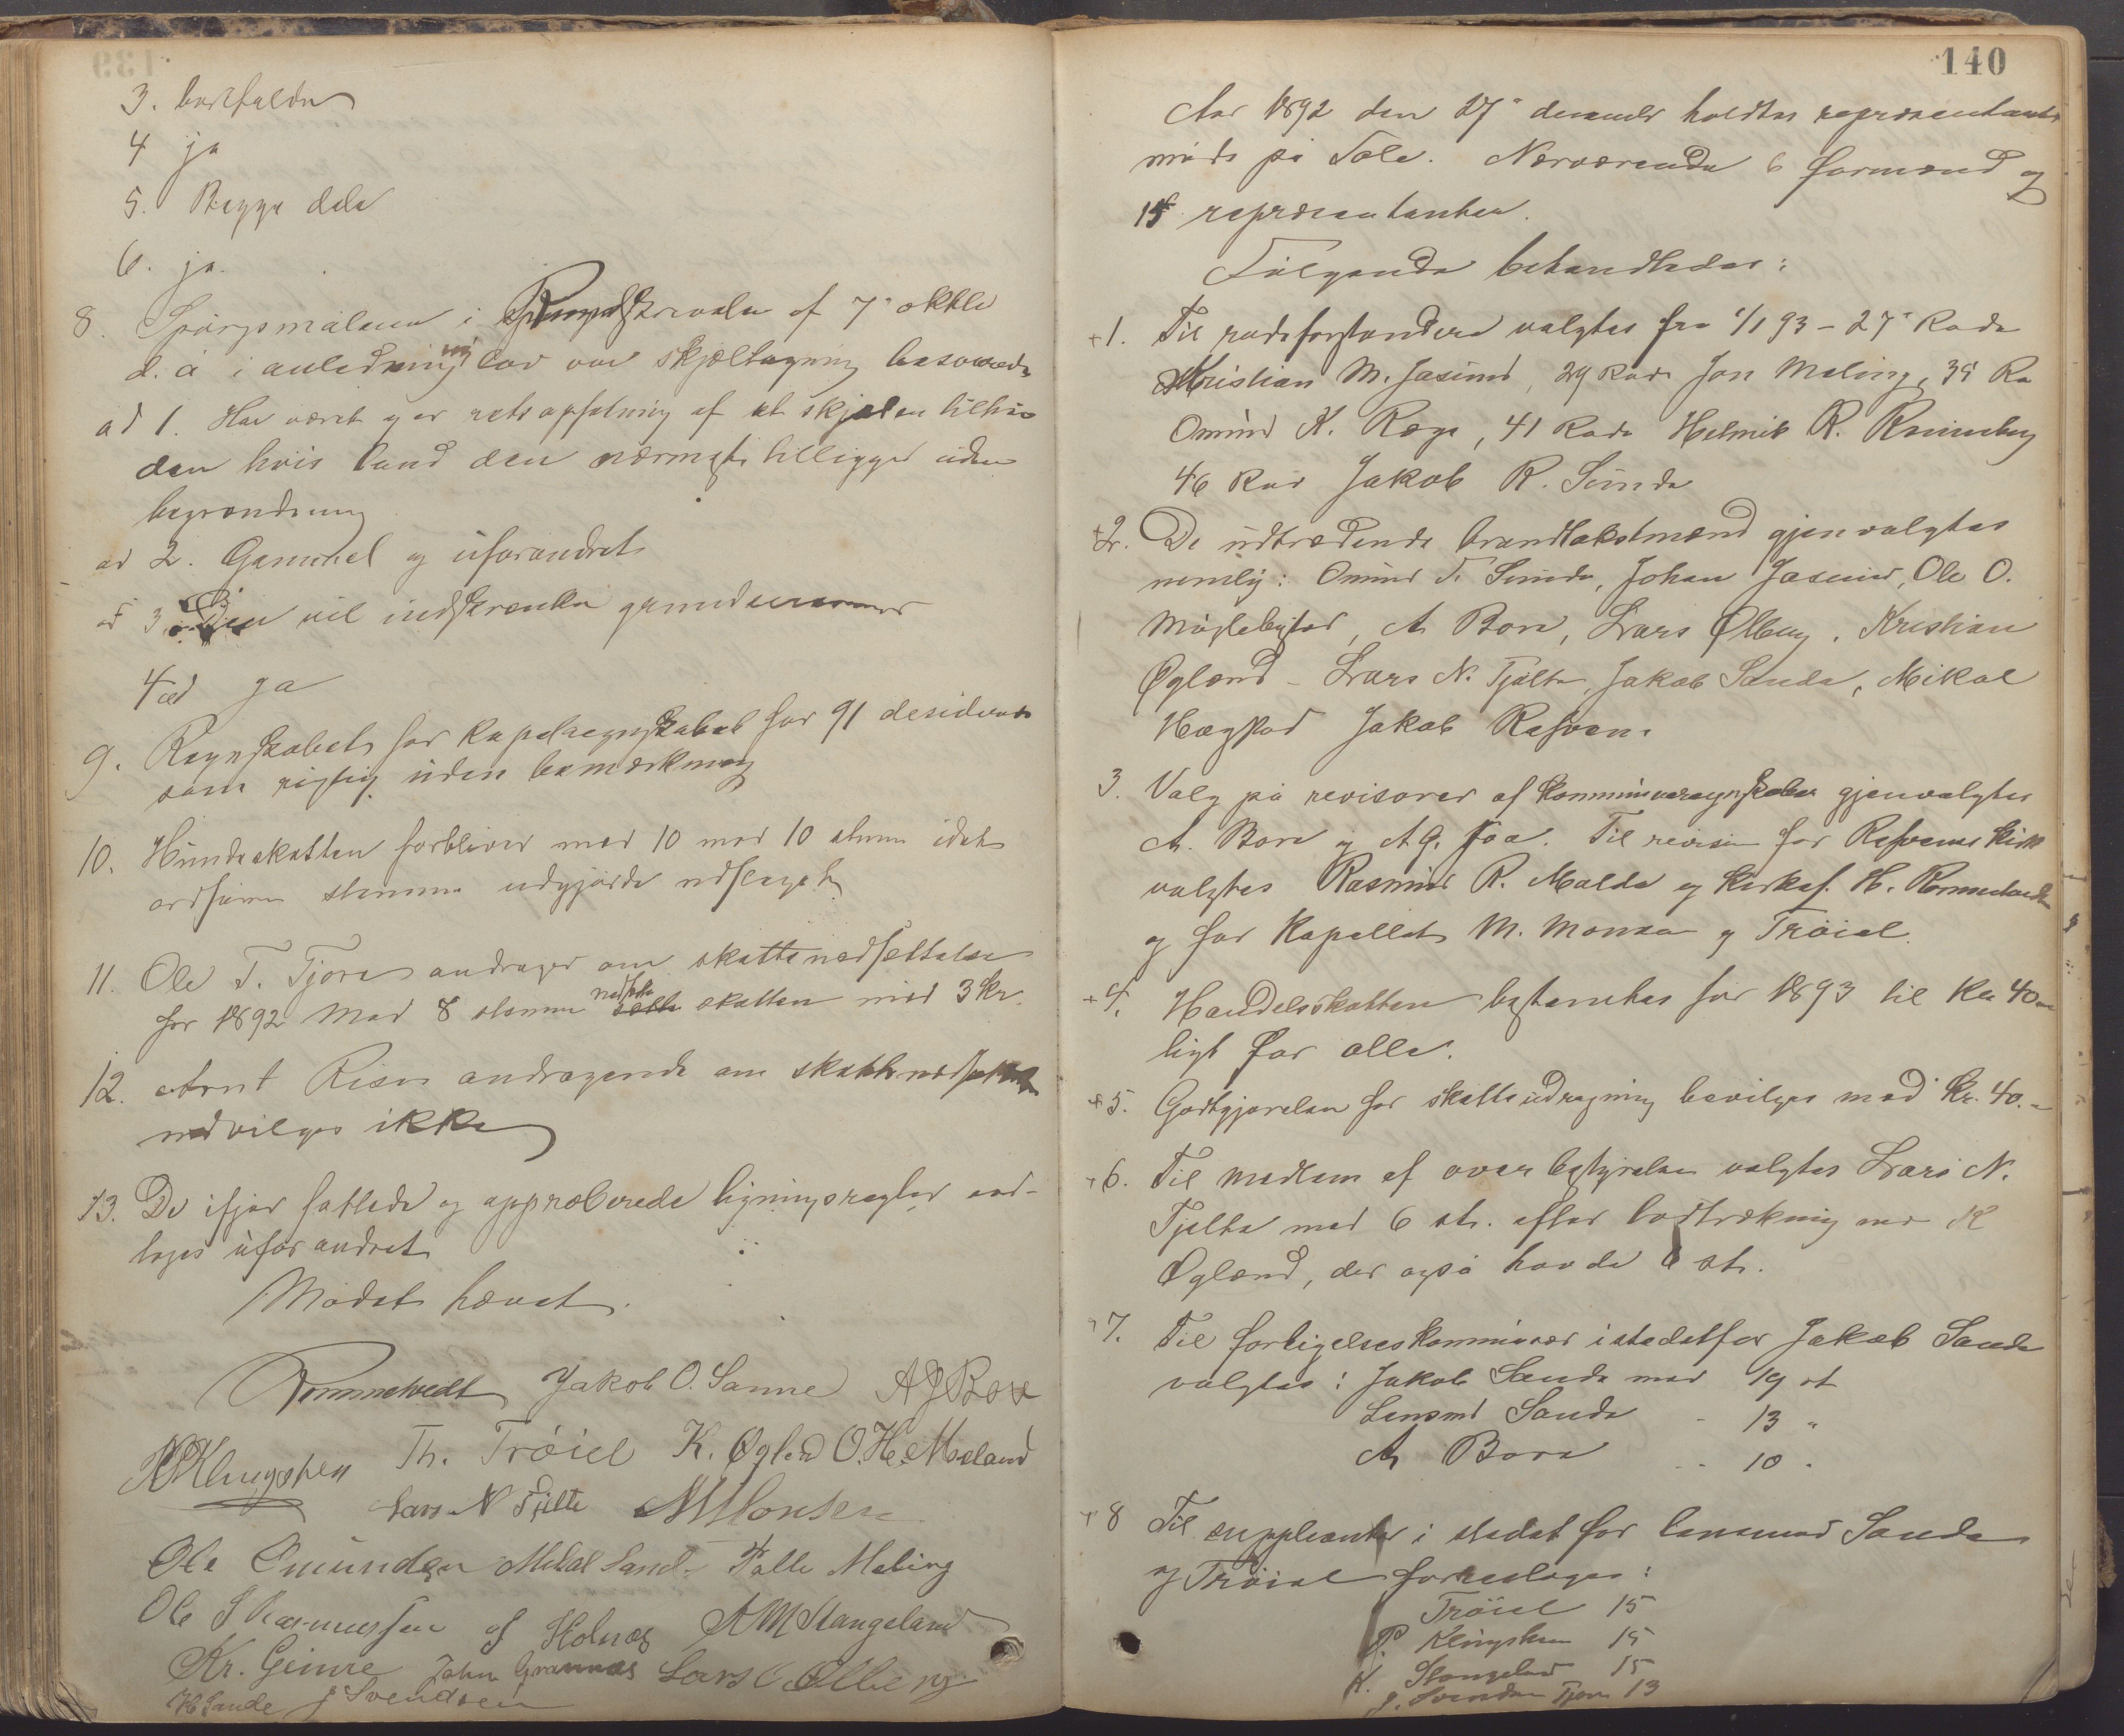 3. bortfalder
4 ja
5. Begge dele
6. ja.
8. Spörgsmålene i Rundskrivelse af 7de oktbr
d. å i anledning ny lov om skjæltagning besvaredes
ad 1. Har været og er retsopfatning af at skjælen tilhör
den hvis land den nærmest tilligger uden
begrændsning
ad 2. Gammel og uforandret
ad 3. Den vil indskrænke
4de ja
9. Regnskabet for kapelregnskabet for 91 desideres
som rigtig uden bemærkning
10. Hundeskatten forbliver med 10 mod 10 stemm idet
ordförers stemme udgjorde udslaget
11. Ole T. Tjora andrager om skattenedsettelse
for 1892 Med 8 stemm nedsatte skatten med 3 kr.
12. Arnt Risa andragende om skattenedsettelse
indvilges ikke
13. De ifjor fattede og approberede ligningsregler ved-
toges uforandret
Mödet hævet.
Rommetvedt Jakob O. Sanne A J Bore
Klingsheen Th. Tröiel K. Øglend O. H. Meland
Lars N Tjelte M Monsen
Ole Omundsen Mikal Sande Palle Maling
Ole S Rasmussen af Holnes A M Stangeland
Kr. Gimre John Grannes Lars O Ølberg
H Sande J Svendsen
140
Aar 1892 den 27de december holdtes repræsentant-
möde på Sole. Nærværende 6 formænd og
15 repræsentanter.
Fölgende behandledes:
+1. Til rodeforstandere valgtes fra 1/1 93 – 27de Rode
Kristian M. Jåsund, 29 Rode Jon Maling, 35 Ro
Omund K. Rege, 41 Rode Helmik R.
46 Rod Jakob R. Sunde
+2. De udtrædende brandtakstmænd gjenvalgtes
nemlig: Omund T. Sunde, Johan Jåsund, Ole O.
Möglebystad, A Bore, Lars Ølberg, Kristian
Øglænd – Lars N. Tjelte, Jakob Sande, Mikal
Hægstad Jakob Refven.
3. Valg på revisorer af kommuneregnskaber gjenvalgtes
A. Bore og A G. Joa. Til revisor for kirk
valgtes Rasmus R. Malde og kirkes. H. Rommetvedt
og for Kapellet M. Monsen og Tröiel.
+4. Handelsskatten bestemtes for 1893 til Kr 40
ligt for alle.
+5. Godtgjörelsen for skatteudregning bevilges med Kr. 40.–
+6. Til medlem af overbestyrelsen valgtes Lars N.
Tjelte med 6 st. efter lodtrækning med K
Øglænd, der også havde 6 st.
+7. Til forligelseskommissær istedetfor Jakob Sande
valgtes: Jakob Sande med 19 st
Lensmd Sande - 13 "
A Bore - 10 "
+8 Til suppleanter i stedet for lensmand Sande
og Tröiel foresloges:
Tröiel 15
P. Klingsheen 15
K. Stangeland 15
J. Svendsen Tjora 13